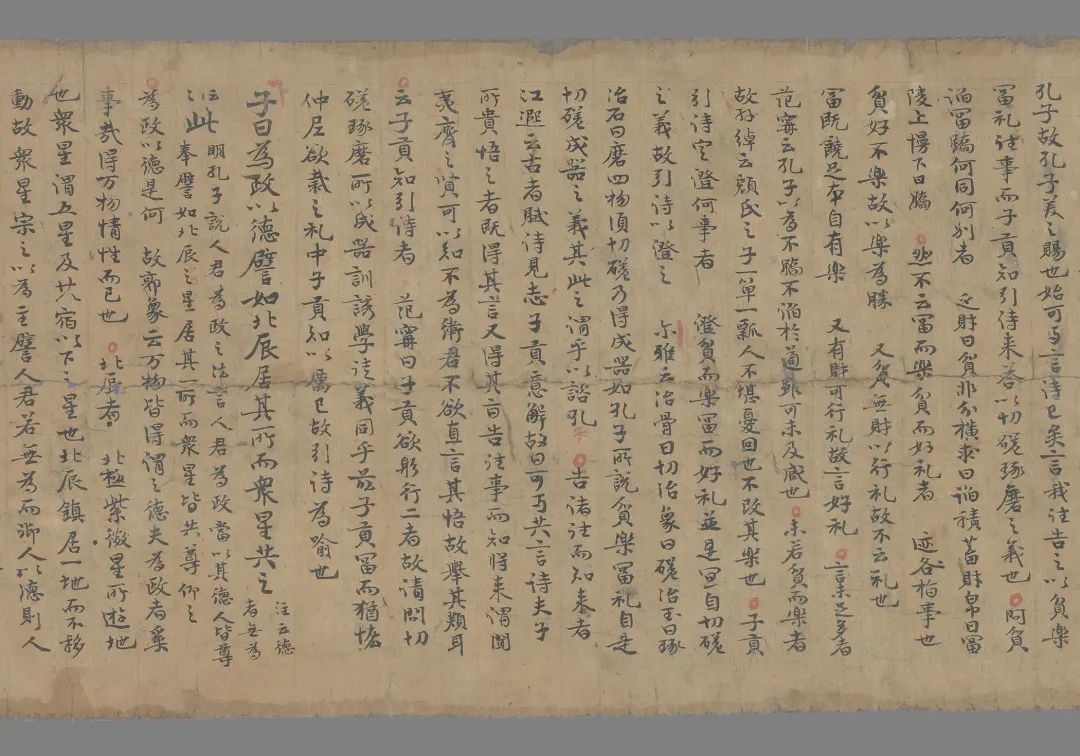 孔子故孔子美之賜也始可与言詩已矣言我往告之以貧樂
冨礼往事而子貢知引詩来荅以切磋琢磨之義也 問貧
謟冨驕何同何別者 乏財曰貧非分横求曰謟積蓄財帛曰冨
陵上慢下曰驕 然不云冨而樂貧而好礼者 亦各指事也
貧好不樂故以樂為勝 又貧無財以行礼故不云礼也
冨既饒足本自有樂 又有財可行礼故言好礼 云未足多者
范甯云孔子以為不驕不謟於道雖可未及臧也 未若貧而樂者
故孫綽云顔氏之子一箪一瓢人不堪憂回也不改其樂也 子貢
引詩定證何事者 證貧而樂冨而好礼並是冝自切磋
之義故引詩以證之 尓雅云治骨曰切治象曰磋治玉曰琢
治石曰磨四物須切磋乃得成器如孔子所説貧樂冨礼自是
切磋成器之義其此之謂乎以諮孔子 告諸往而知来者
江遐云古者賦詩見志子貢意解故曰可与共言詩夫子
所貴悟之者既得其言又得其旨告往事而知将来謂聞
夷齊之賢可以知不為衛君不欲直言其悟故舉其類耳
云子貢知引詩者 范甯曰子貢欲躬行二者故請問切
磋琢磨所以成器訓誘學徒義同乎茲子貢冨而猶恡
仲尼欲裁之礼中子貢知以厲己故引詩為喻也
子曰為政以德譬如北辰居其所而衆星共之 注云德者無為
云此明孔子説人君為政之法言人君為政當以其德人皆尊
之奉譬如北辰之星居其一所而衆星皆共尊仰之
為政以德是何 故郭象云万物皆得謂之德夫為政者奚
事哉得万物情性而已也 北辰者 北極紫微星所遊地
也衆星謂五星及廿八宿以下之星也北辰鎮居一地而不移
動故衆星宗之以為主譬人君若無為而御人以德則人